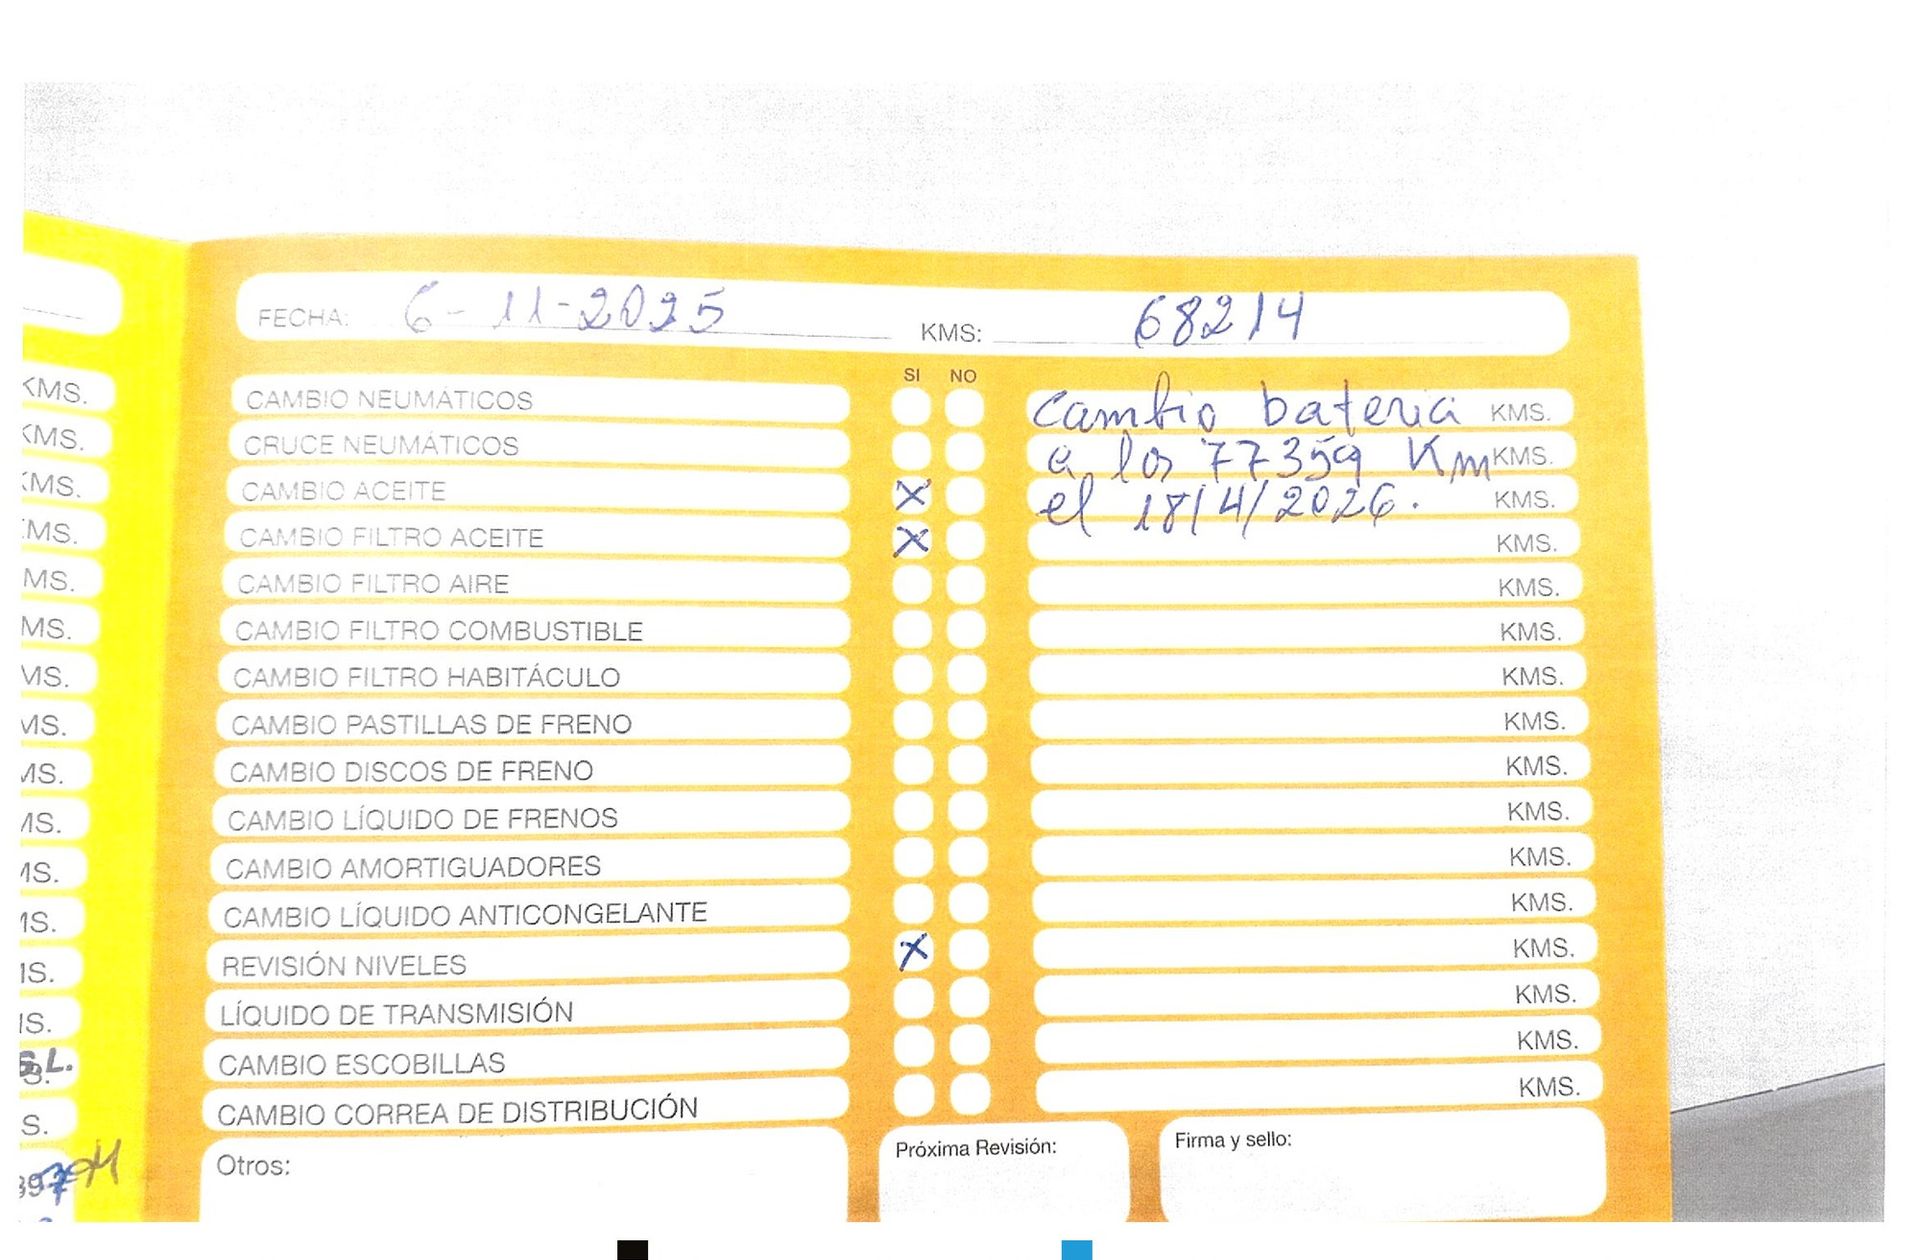 KMS.
KMS.
KMS.
MS.
MS.
MS.
MS.
MS.
MS.
MS.
MS.
MS.
S.
S.L.
S.
S.
FECHA: 6-11-2025 KMS: 68214
SI NO
CAMBIO NEUMÁTICOS cambio bateria KMS.
CRUCE NEUMÁTICOS a los 77359 Km KMS.
CAMBIO ACEITE X el 18/4/2026. KMS.
CAMBIO FILTRO ACEITE X KMS.
CAMBIO FILTRO AIRE KMS.
CAMBIO FILTRO COMBUSTIBLE KMS.
CAMBIO FILTRO HABITÁCULO KMS.
CAMBIO PASTILLAS DE FRENO KMS.
CAMBIO DISCOS DE FRENO KMS.
CAMBIO LÍQUIDO DE FRENOS KMS.
CAMBIO AMORTIGUADORES KMS.
CAMBIO LÍQUIDO ANTICONGELANTE KMS.
REVISIÓN NIVELES X KMS.
LÍQUIDO DE TRANSMISIÓN KMS.
CAMBIO ESCOBILLAS KMS.
CAMBIO CORREA DE DISTRIBUCIÓN KMS.
Otros: Próxima Revisión: Firma y sello: